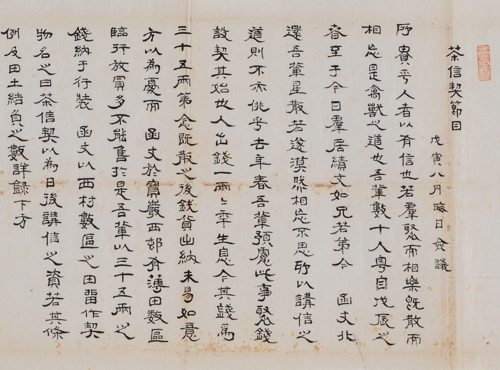 茶信契節目
戊寅八月晦日僉議
所貴乎人者以有信也若羣聚而相樂旣散而
相忘是禽獸之道也吾輩數十人粤自戊辰之
春至于今日羣居績文如兄若弟今 函丈北
還吾輩星散若遂漠然相忘不思所以講信之
道則不亦佻乎去年春吾輩預慮此事聚錢
設契其始也人出錢一兩二年生息今其錢爲
三十五兩第念旣散之後錢貨出納未易如意
方以爲憂而 函丈於寶巖西邨有薄田數區
臨行放賣多不能售於是吾輩以三十五兩之
錢納于行裝 函丈以西村數區之田留作契
物名之曰茶信契以爲日後講信之資若其條
例及田土結負之數詳錄下方